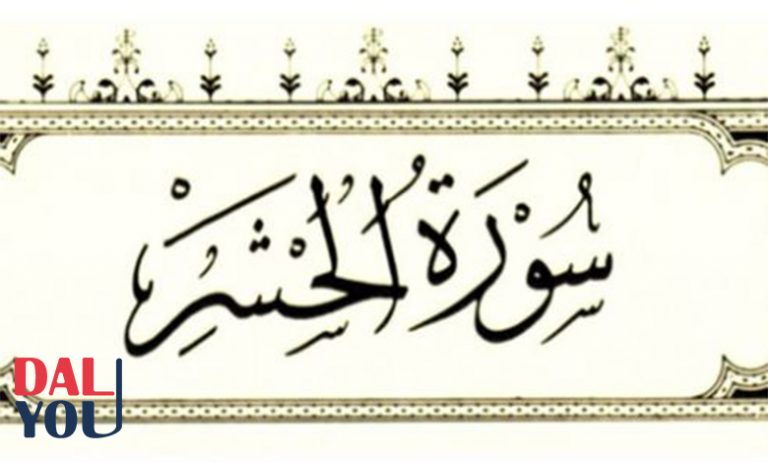 سُورَةُ الْحَشْرِ
DAL
YOU